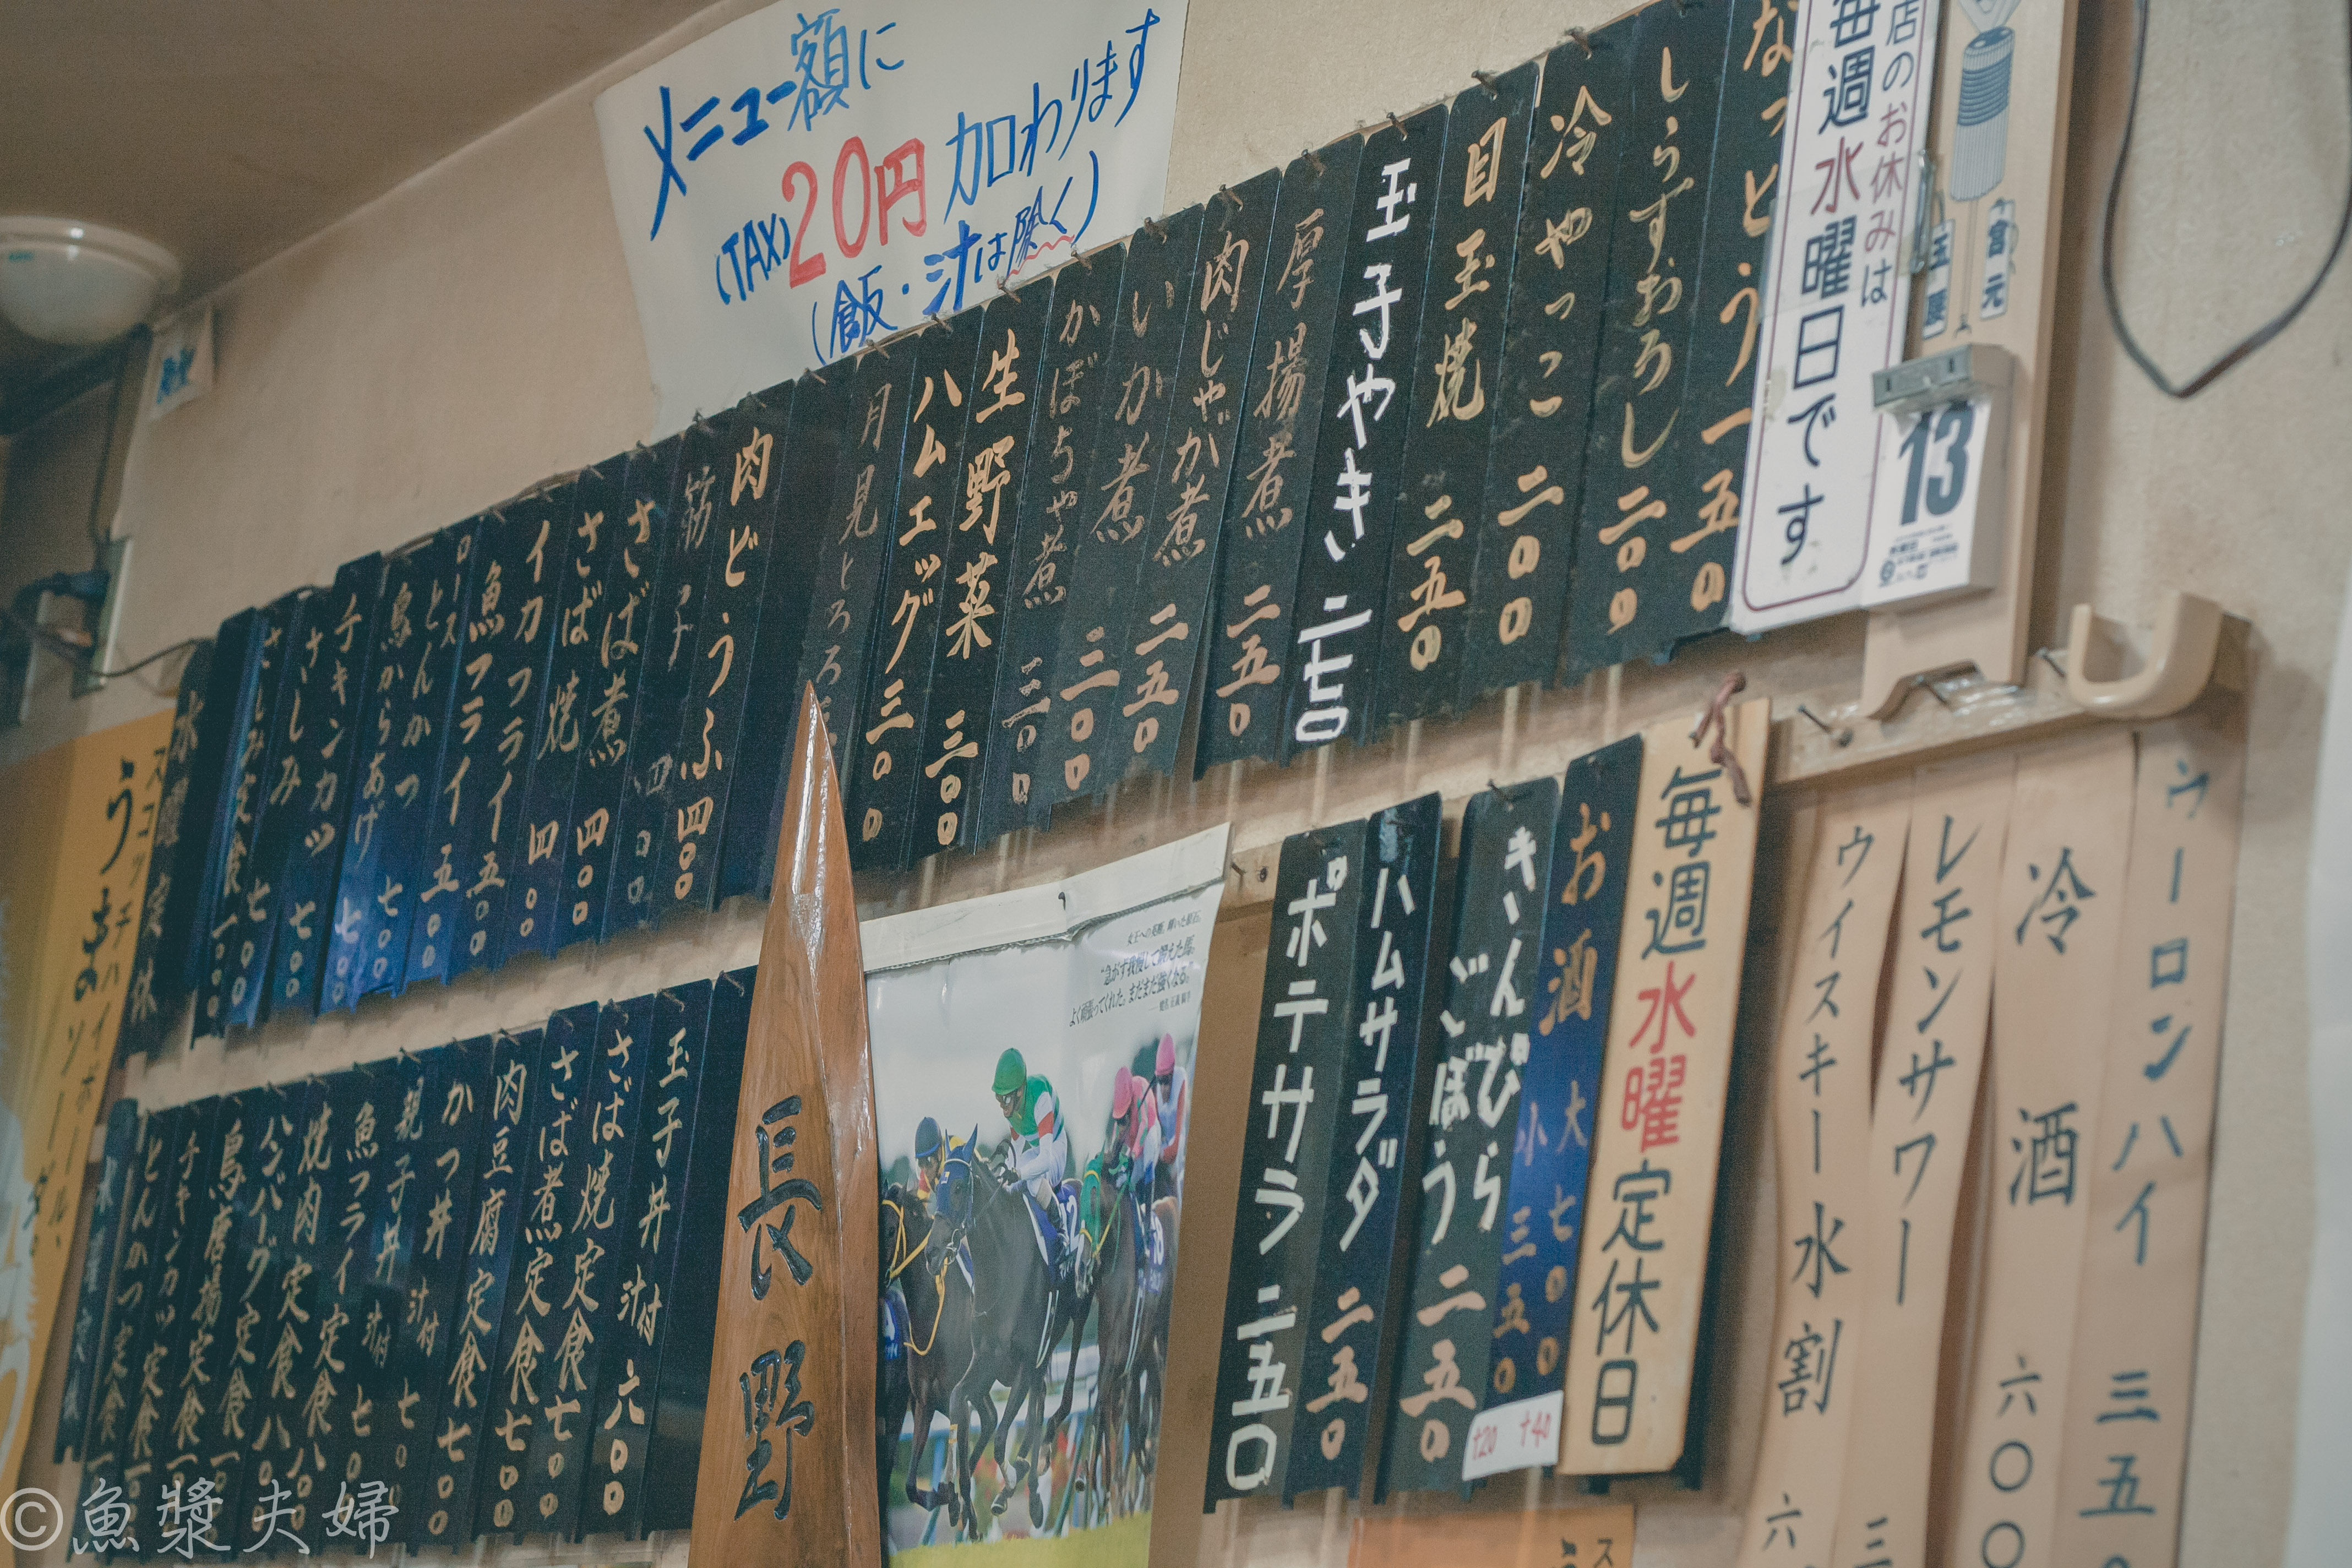 メニュー額に
(TAX)20円加わります
(飯・汁は除く)
店のお休みは
毎週水曜日です
13
なっとう 一五〇
しらすおろし 二〇〇
冷やっこ 二〇〇
目玉焼 二五〇
玉子やき 二七〇
厚揚煮 二五〇
肉じゃが煮 二五〇
いか煮 三〇〇
かぼちゃ煮 三〇〇
生野菜 三〇〇
ハムエッグ 三〇〇
月見とろろ
肉どうふ 四〇〇
筋子 四〇〇
さば煮 四〇〇
さば焼 四〇〇
イカフライ 五〇〇
魚フライ 五〇〇
ロースとんかつ 七〇〇
鳥からあげ 七〇〇
チキンカツ 七〇〇
さしみ 七〇〇
さしみ定食 一、〇〇〇
水曜定休
ウーロンハイ 三五〇
冷酒 六〇〇
レモンサワー 三
ウイスキー水割 六
毎週水曜定休日
お酒 大 七〇〇 小 三五〇
+20 +40
きんぴらごぼう 二五〇
ハムサラダ 二五〇
ポテサラ 二五〇
"急がず我慢して潤えた馬。
よく頑張ってくれた。まだまだ強くなる。"
長野
玉子丼 汁付 六〇〇
さば焼定食 七〇〇
さば煮定食 七〇〇
肉豆腐定食 七〇〇
かつ丼 汁付 七〇〇
親子丼 汁付 七〇〇
魚フライ定食 八〇〇
焼肉定食 八〇〇
ハンバーグ定食
鳥唐揚定食
チキンカツ定食
とんかつ定食
水曜定休
スコッチハイボール、
うまソーーダ。
©魚漿夫婦